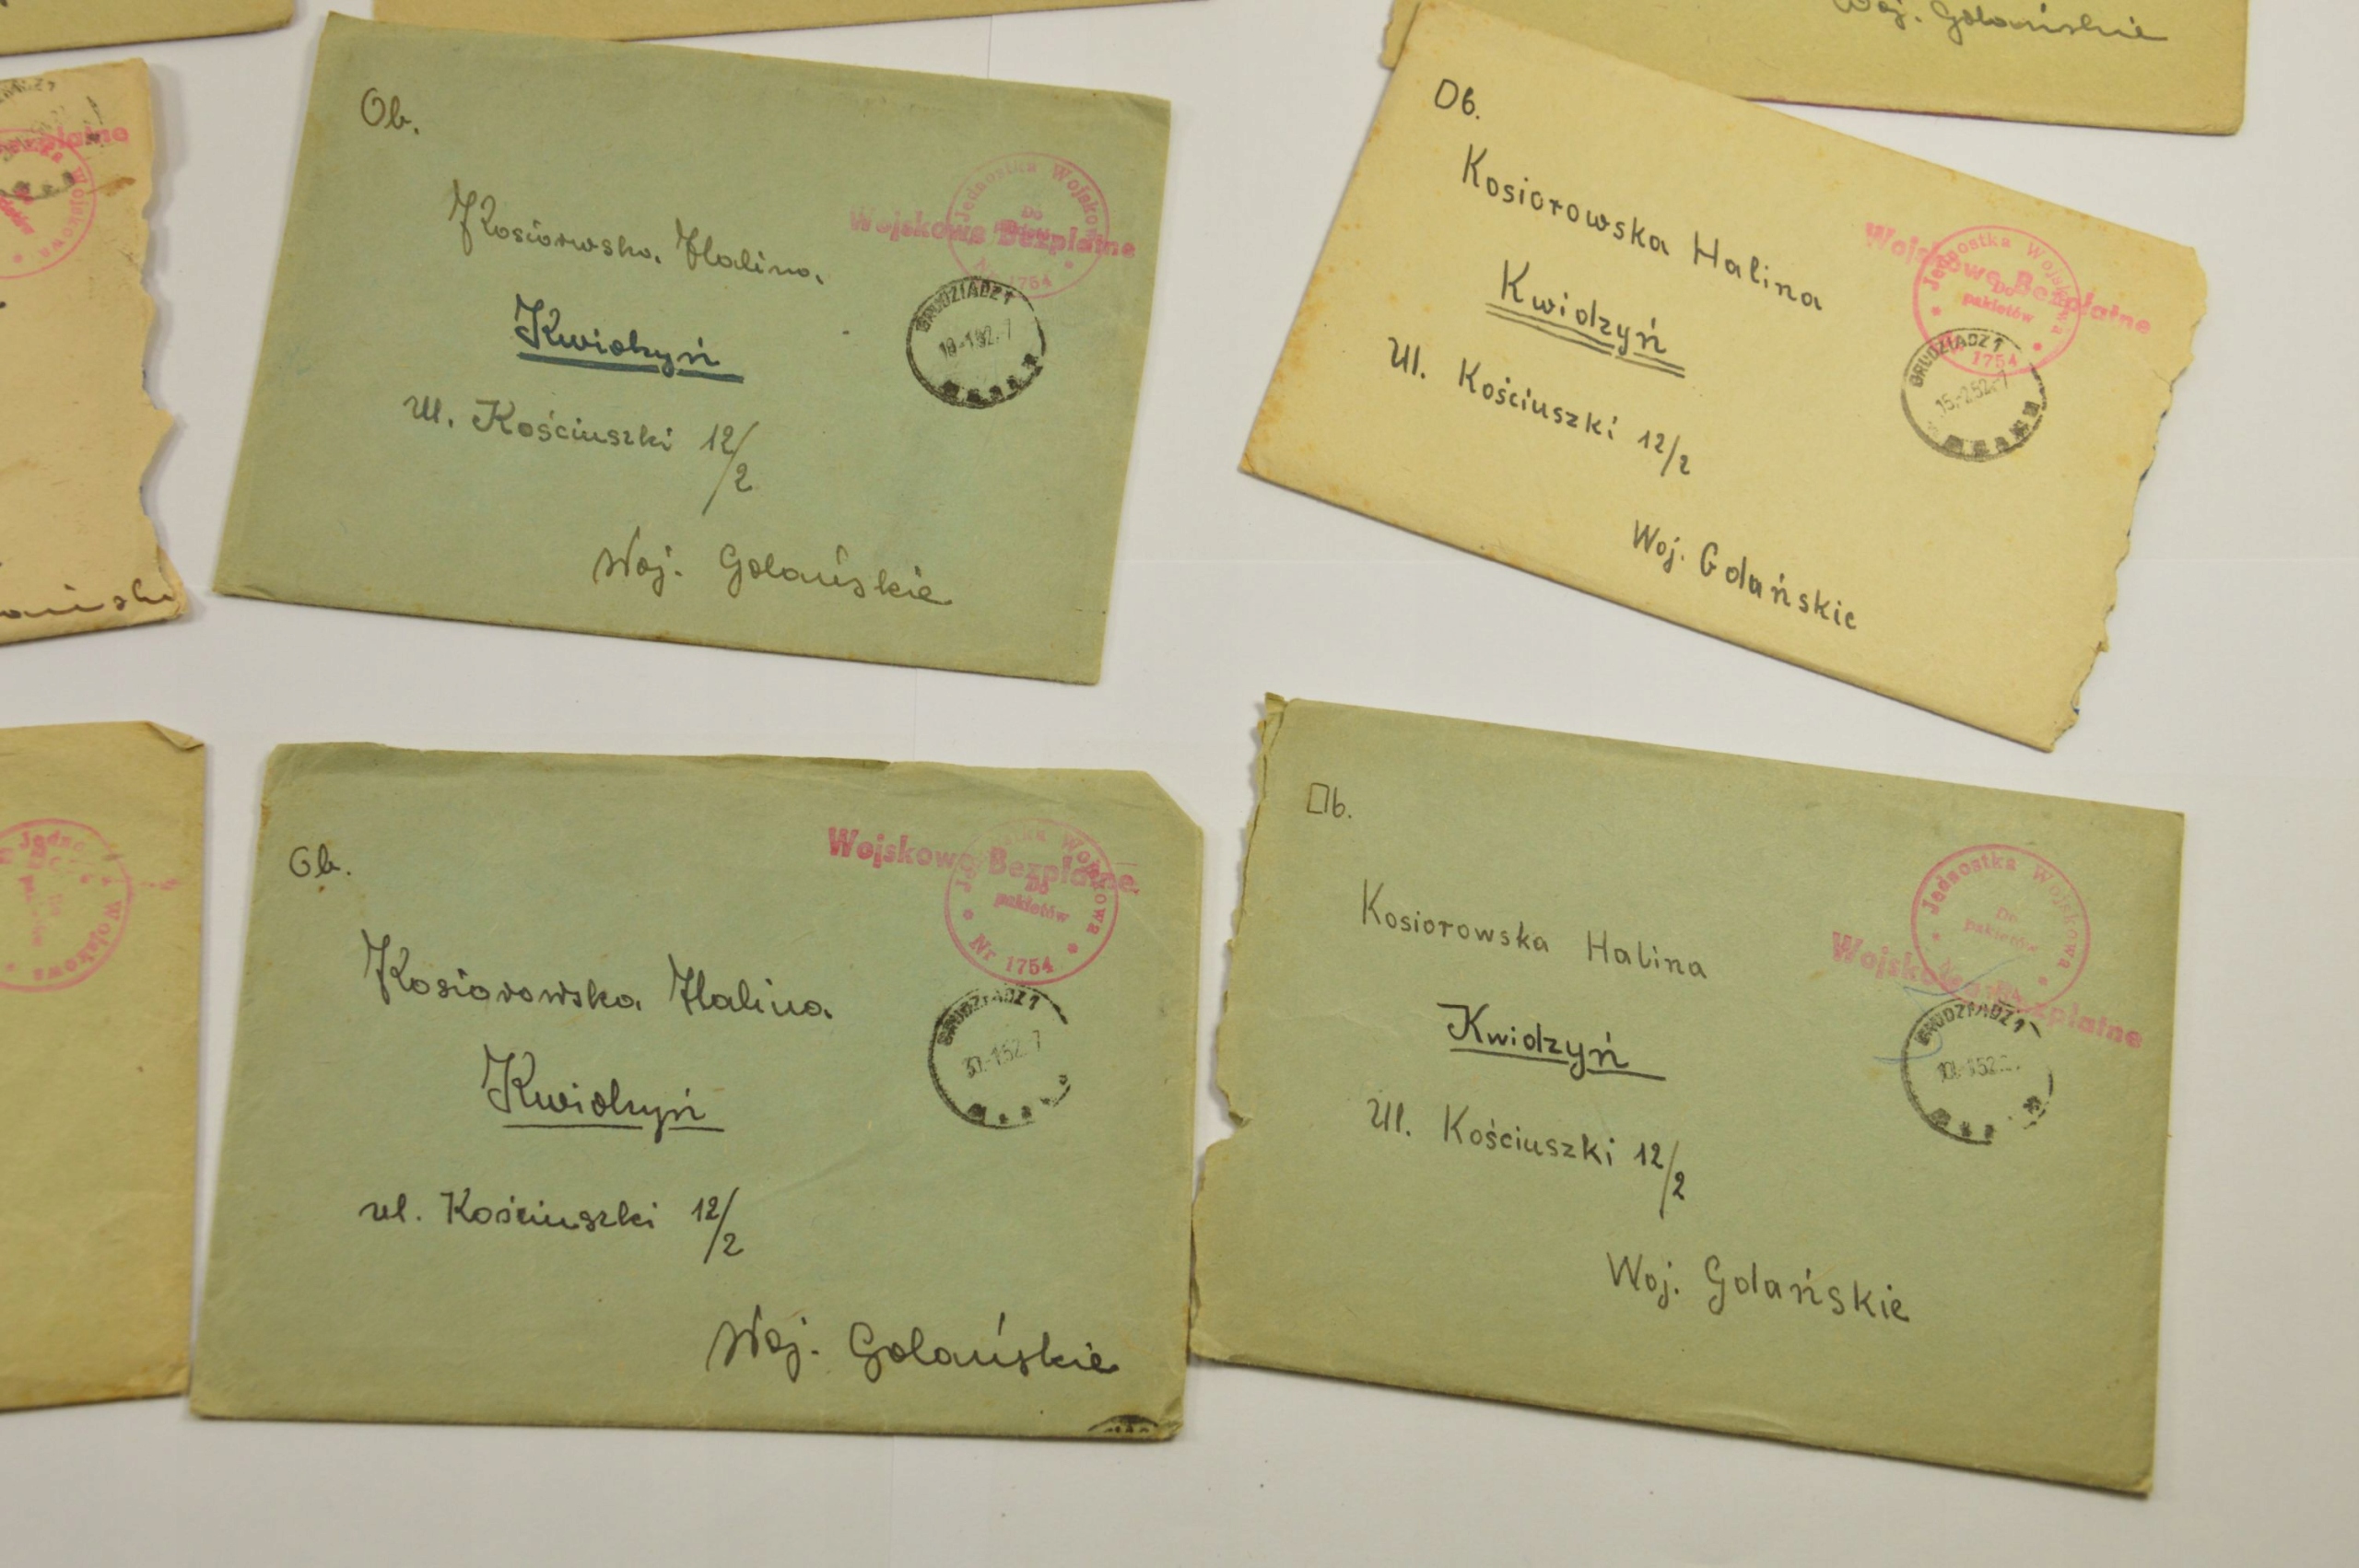 Woj. Gdańskie
Ob.
Kosiorowska Halina
Kwidzyń
ul. Kościuszki 12/2
Woj. Gdańskie
Wojskowe Bezpłatne
Jednostka Wojskowa
Do
Nr 1754
GRUDZIĄDZ 1
Ob.
Kosiorowska Halina
Kwidzyń
Ul. Kościuszki 12/2
Woj. Gdańskie
Wojskowe Bezpłatne
Jednostka Wojskowa
Do
pakietów
1754
GRUDZIĄDZ 1
15.-2.52.-7
Bezpłatne
Wojskowa
Ob.
Kosiorowska Halina
Kwidzyń
ul. Kościuszki 12/2
Woj. Gdańskie
Wojskowe Bezpłatne
Jednostka Wojskowa
Do
pakietów
Nr 1754
GRUDZIĄDZ 1
Ob.
Kosiorowska Halina
Kwidzyń
Ul. Kościuszki 12/2
Woj. Gdańskie
Jednostka Wojskowa
Do
pakietów
Wojskowe Bezpłatne
GRUDZIĄDZ 1
Wojskowa